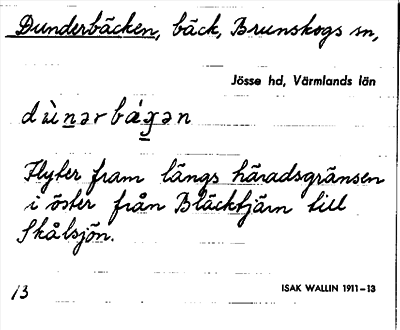 Dunderbäcken, bäck, Brunskogs sn,
Jösse hd, Värmlands län
Flyter fram längs häradsgränsen
i öster från Bläcktjärn till
Skålsjön.
13
ISAK WALLIN 1911–13